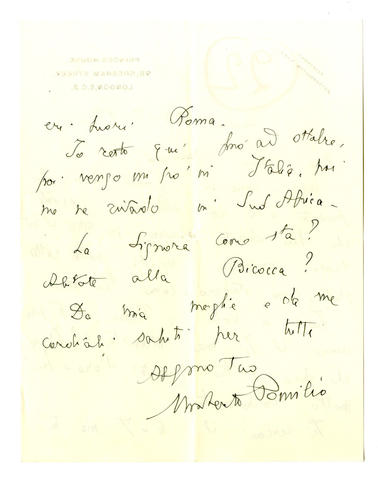 eri fuori Roma.
Io resto qui fino ad ottobre,
poi vengo un po' in Italia, poi
me ne ritorno in Sud Africa -
La Signora come sta?
Abitate alla Bicocca?
Da mia moglie e da me
cordiali saluti per tutti
Tuo
Umberto Pomilio